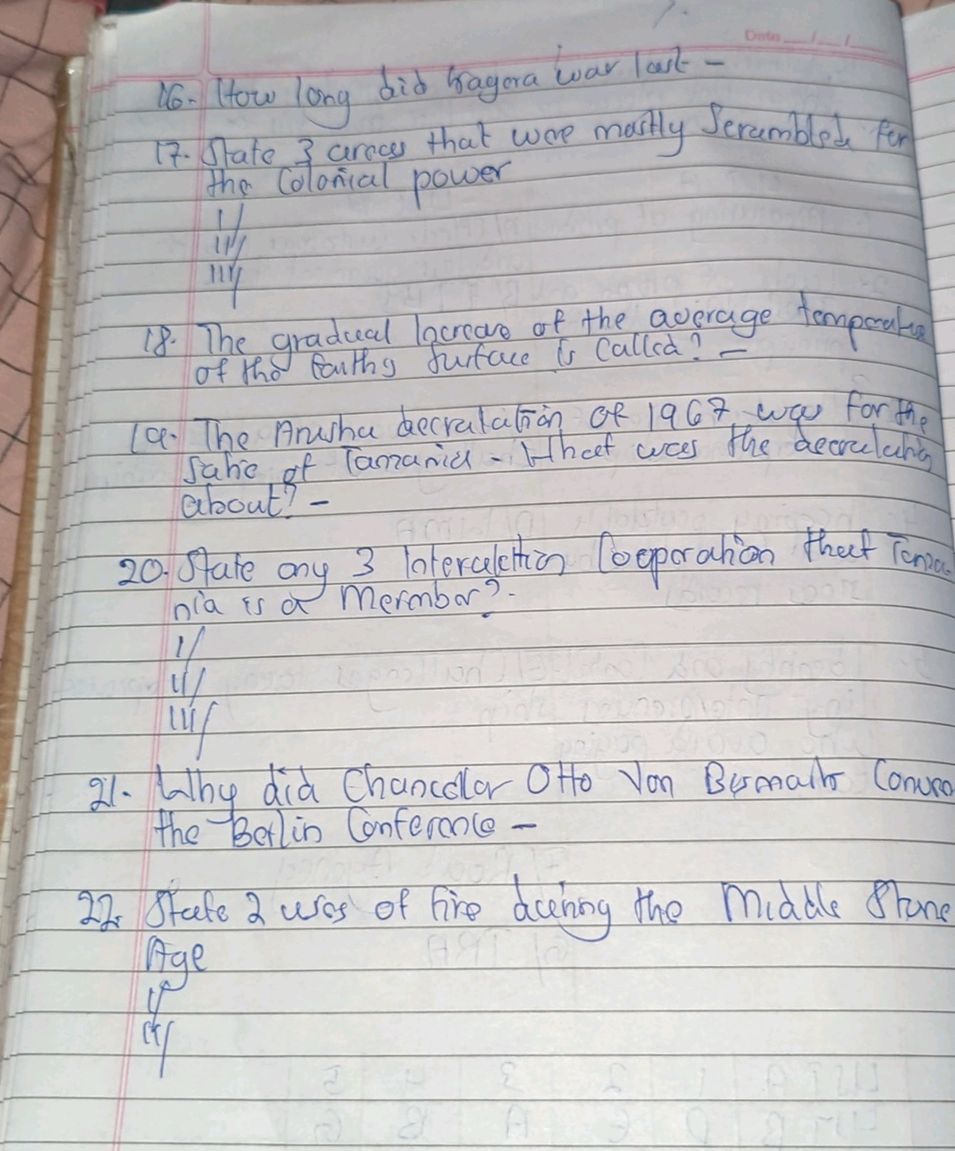 Date / /
16. How long did Kagera war last -
17. State 3 areas that were mostly Scrambled for
the Colonial power
i/
ii/
iii/
18. The gradual Increase of the average temperature
of the Earths Surface is Called? -
19. The Arusha decralation of 1967 was for the
Sake of Tanzania - What was the decralation
about? -
20. State any 3 Interaction Cooperation that Tanza
nia is a Member?.
i/
ii/
iii/
21. Why did Chancellor Otto Von Bismark Convene
the Berlin Conference -
22. State 2 uses of fire during the Middle Stone
Age
i/
ii/